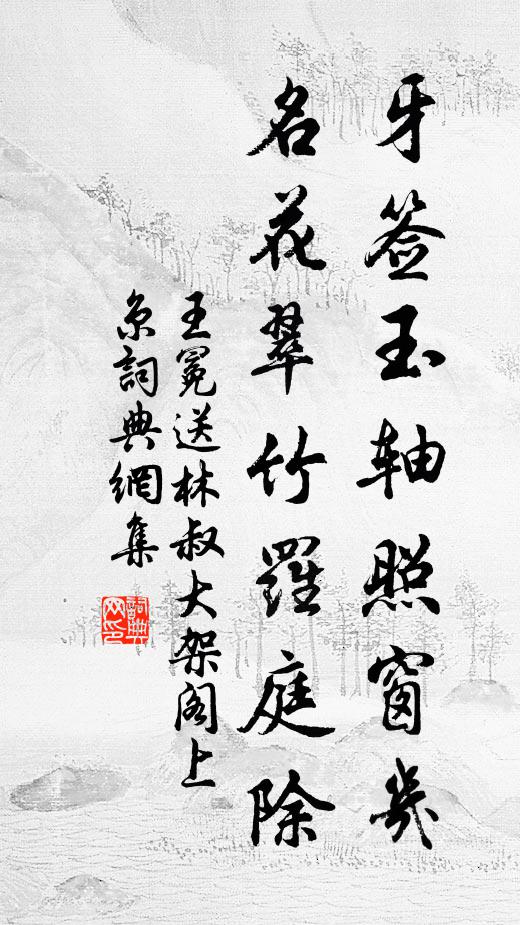 牙签玉轴照窗几
名花翠竹羅庭除
王冕送林叔大架阁上
京詞典網集
詞典网印